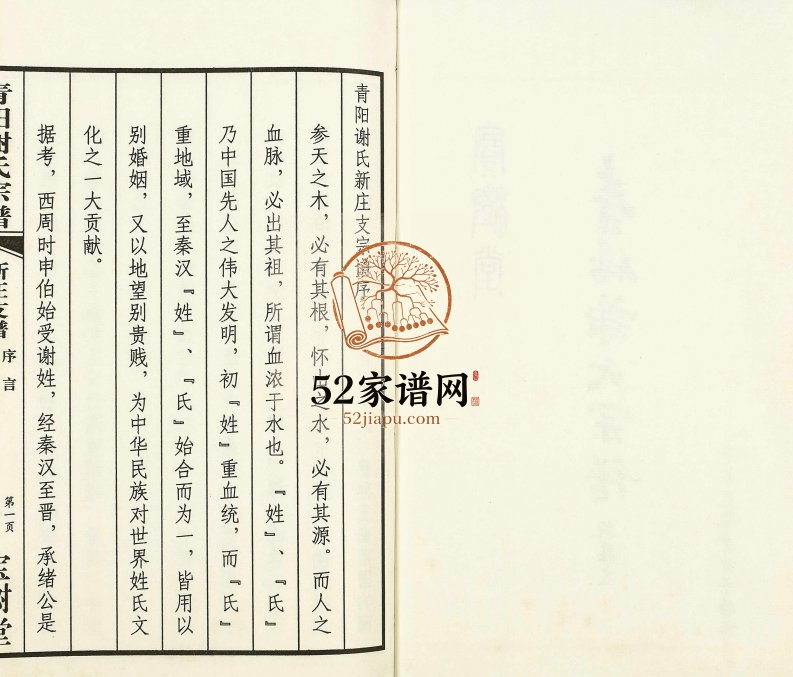 青阳谢氏新庄支宗谱序
参天之木，必有其根，怀山之水，必有其源。而人之
血脉，必出其祖，所谓血浓于水也。『姓』、『氏』
乃中国先人之伟大发明，初『姓』重血统，而『氏』
重地域，至秦汉『姓』、『氏』始合而为一，皆用以
别婚姻，又以地望别贵贱，为中华民族对世界姓氏文
化之一大贡献。
据考，西周时申伯始受谢姓，经秦汉至晋，承绪公是
青阳谢氏宗谱
新庄支谱
序言
第一页
宝树堂
52家谱网
52jiapu.com